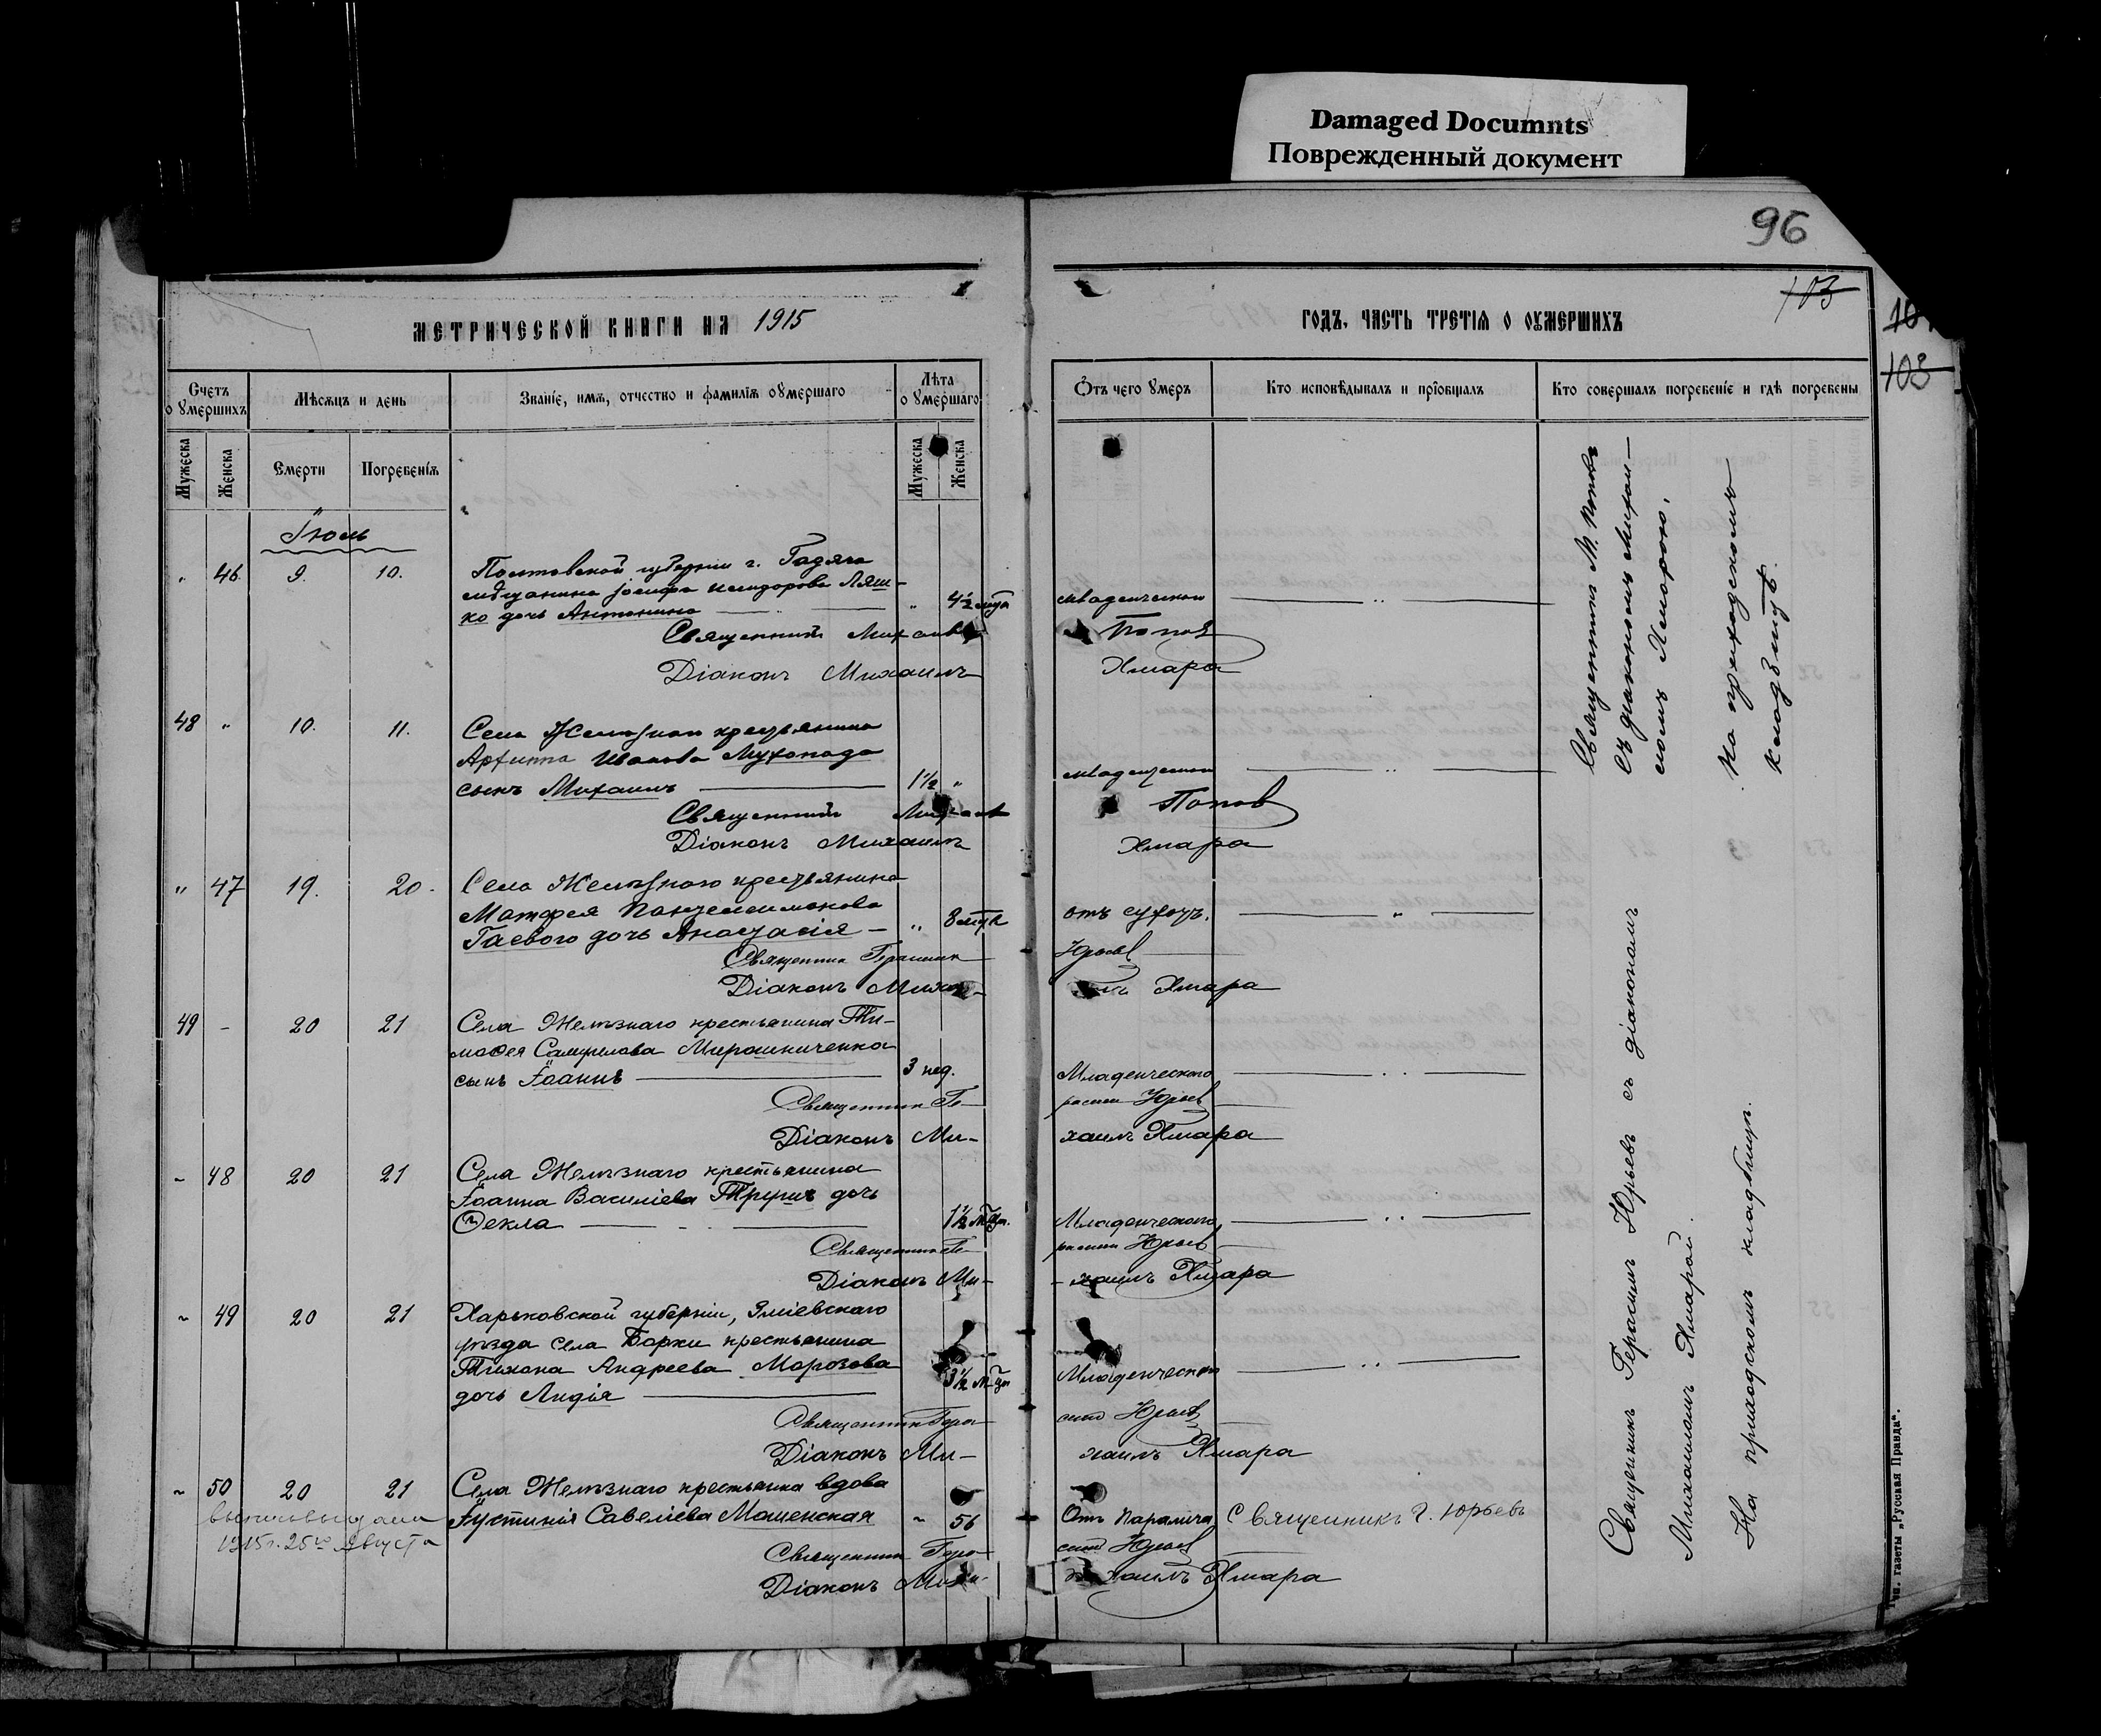 Damaged Documnts
Поврежденный документ
96
103
103
МЕТРИЧЕСКОЙ КНИГИ НА 1915
ГОДЪ, ЧАСТЬ ТРЕТІЯ О ОУМЕРШИХЪ
Счетъ о умершихъ
Мѣсяцъ и день
Званіе, имя, отчество и фамилія оумершаго
Лѣта о умершаго
Мужеска
Женска
Смерти
Погребенія
Мужеска
Женска
Отъ чего умеръ
Кто исповѣдывалъ и пріобщалъ
Кто совершалъ погребеніе и гдѣ погребены
Іюль
46. 9. 10. Полтавской губерніи г. Гадяча
мѣщанина Іосифа Исидорова Ляш-
ко дочь Антонина " 4½ мѣся младенческой
Священникъ Михаилъ Попов
Діаконъ Михаилъ Хмара
48 " 10. 11. Села Желѣзнаго крестьянина
Архиппа Иванова Мухопада
сынъ Михаилъ 1½ " младенческой
Священникъ Михаилъ Попов
Діаконъ Михаилъ Хмара
" 47 19. 20. Села Желѣзнаго крестьянина
Матфея Пантелеимонова
Гаевого дочь Анастасія – " 8 мѣся отъ сухот.
Священник Герасим Юрьев
Діаконъ Михаилъ Хмара
49 - 20 21 Села Желѣзнаго крестьянина Ти-
моѳея Самуилова Мирошниченка
сынъ Іоаннъ 3 нед. Младенческаго
Священник Ге- расим Юрьев
Діаконъ Ми- хаилъ Хмара
- 48 20 21 Села Желѣзнаго крестьянина
Іоанна Василіева Трушъ дочь
Ѳекла 1½ м-ца. Младенческаго
Священник Ге- расим Юрьев
Діаконъ Ми- хаилъ Хмара
~ 49 20 21 Харьковской губерніи, Зміевскаго
уѣзда села Борки крестьянина
Тихона Андреева Морозова
дочь Лидія 3½ м-ца Младенческаго
Священник Гера- сим Юрьев
Діаконъ Ми- хаилъ Хмара
~ 50 20 21 Села Желѣзнаго крестьянка вдова
Іустинія Савеліева Мошенская ~ 56 Отъ паралича Священникъ Г. Юрьевъ
1915 г. 25го Августа
Священник Гера- сим Юрьев
Діаконъ Михаилъ Хмара
Священникъ М. Поповъ
съ діакономъ Михаи-
ломъ Хмарою.
На приходскомъ
кладбищѣ.
Священникъ Герасимъ Юрьевъ съ діакономъ
Михаиломъ Хмарой.
На приходскомъ кладбищѣ.
Тип. газеты „Русская Правда“.